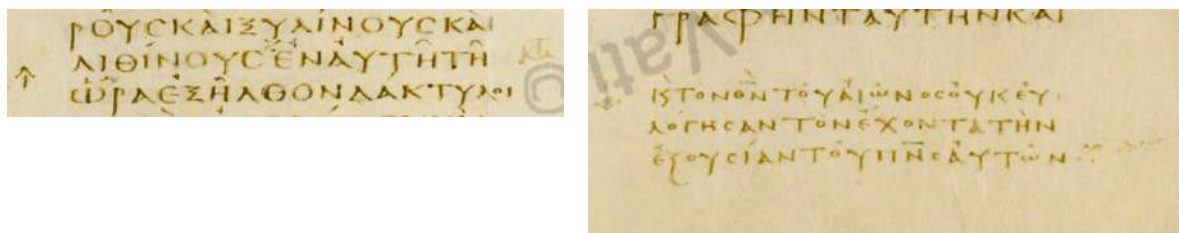 ΡΟΥϹΚΑΙΞΥΛΙΝΟΥϹΚΑΙ
ΛΙΘΙΝΟΥϹΕΝΑΥΤΗΤΗ
ΩΡΑΕΞΗΛΘΟΝΔΑΚΤΥΛΟΙ
©
ΓΡΑΦΗΝΤΑΥΤΗΝΚΑΙ
Vati
ΚΤΟΝΘ̅Ν̅ΤΟΥΑΙΩΝΟϹΟΥΚΕΥ
ΛΟΓΗϹΑΝΤΟΝΕΧΟΝΤΑΤΗΝ
ΕΞΟΥϹΙΑΝΤΟΥΠ̅Ν̅ϹΑΥΤΩΝ